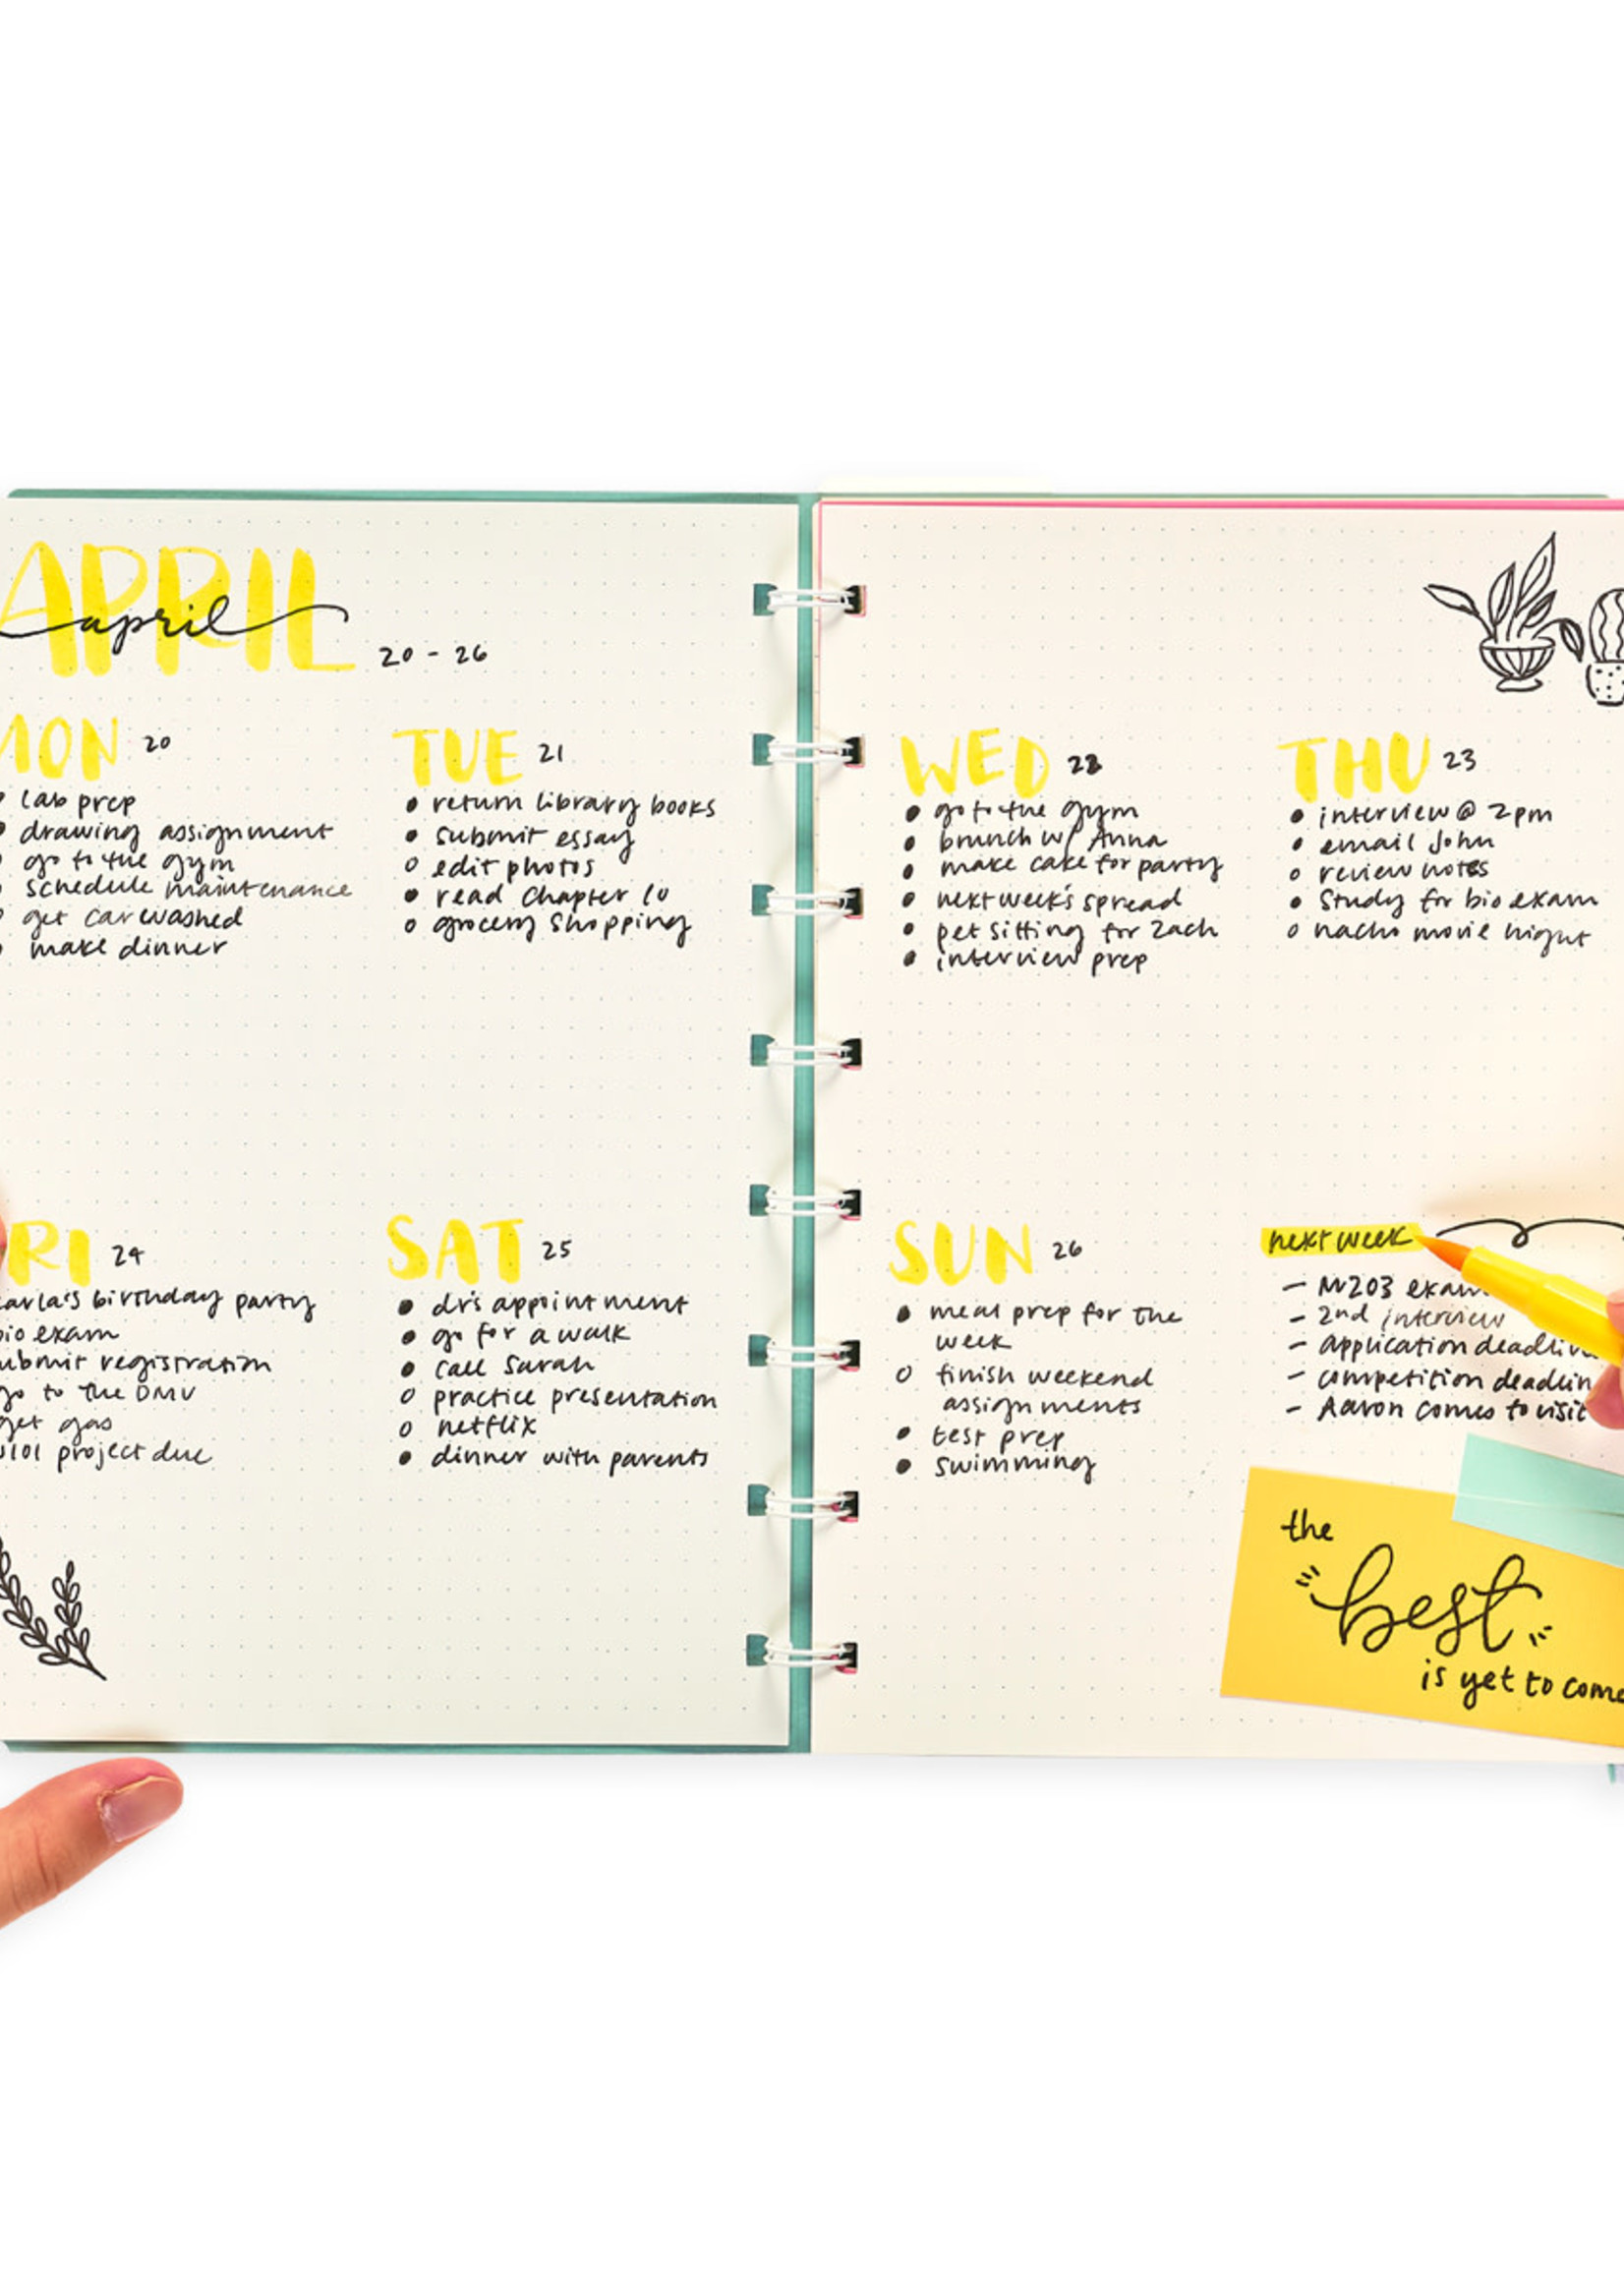 APRIL
april
20 - 26
MON 20
lab prep
drawing assignment
go to the gym
schedule maintenance
get car washed
make dinner
TUE 21
return library books
submit essay
edit photos
read Chapter 10
grocery shopping
WED 22
go to the gym
brunch w/ Anna
make cake for party
next week's spread
pet sitting for Zach
interview prep
THU 23
interview @ 2pm
email John
review notes
Study for bio exam
nacho movie night
FRI 24
karla's birthday party
bio exam
submit registration
go to the DMV
get gas
project due
SAT 25
dr's appointment
go for a walk
call Sarah
practice presentation
netflix
dinner with parents
SUN 26
meal prep for the
week
finish weekend
assignments
test prep
swimming
next week
- M203 exam
- 2nd interview
- application deadline
- competition deadlin
- Aaron comes to visit
the
best
is yet to come